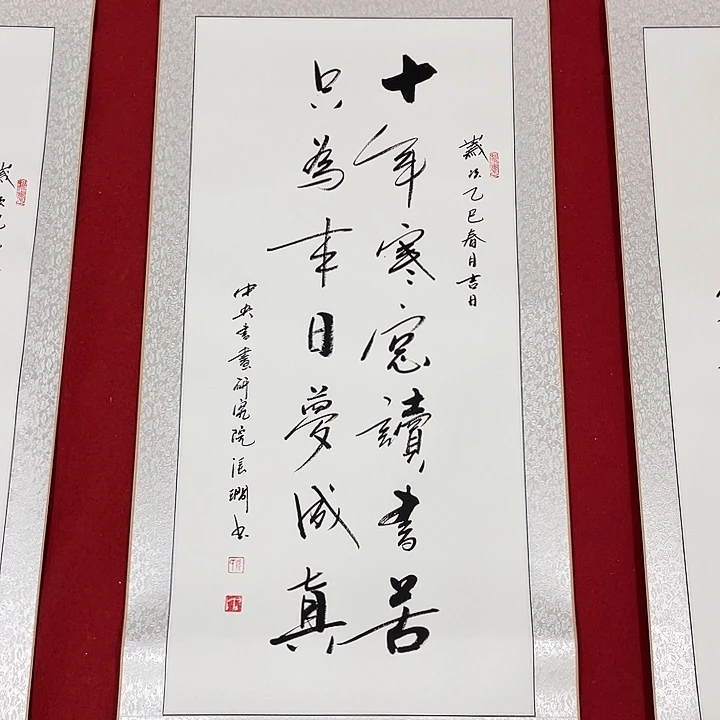 歲次乙巳春月吉日
十年寒窓讀書苦
只為来日夢成真
中央書畫研究院張书
歲次乙